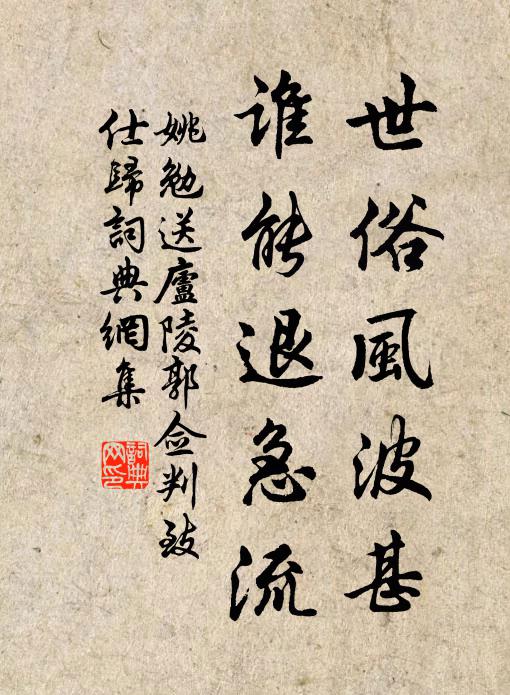 世俗風波甚
谁能退急流
姚勉送廬陵郭佥判致
仕歸詞典網集
詞典網印